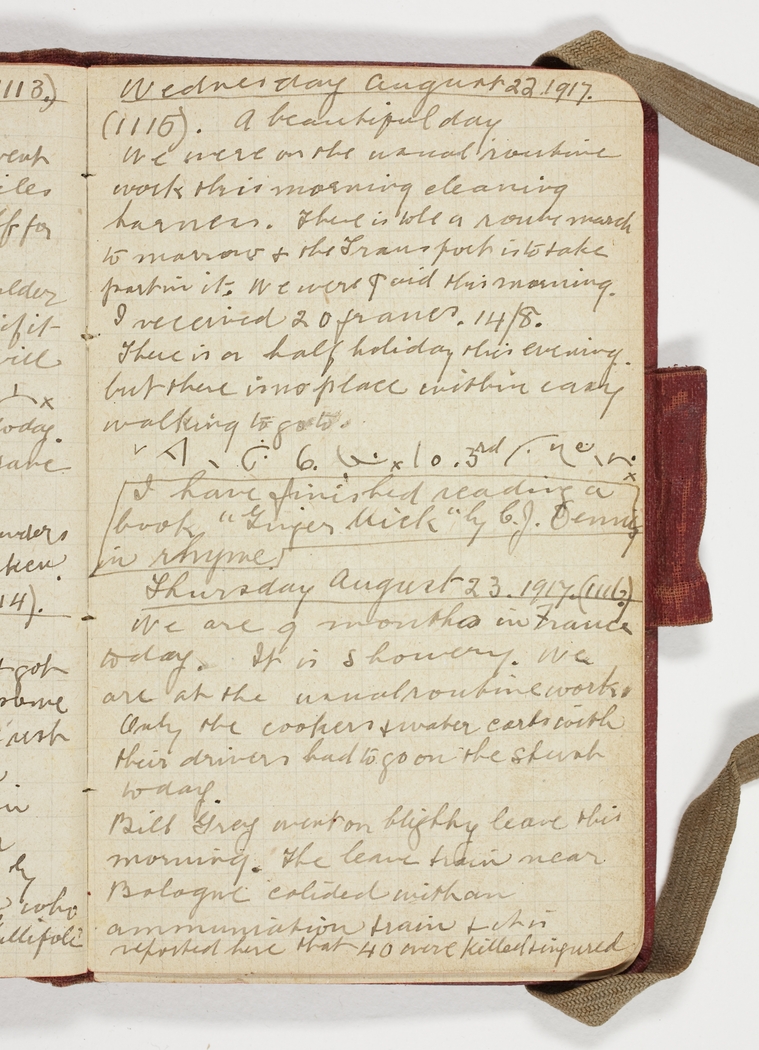 1113.)
vent
iles
ff for
ulder
if it
will
today.
rave
unders
ken
14).
t got
some
rust
in
ly
who
allifoli
Wednesday August 22. 1917.
(1115). A beautiful day
We were on the usual routine
work this morning cleaning
harness. There is to be a route march
to morrow & the Transport is to take
part in it. We were paid this morning.
I received 20 francs. 14/8.
There is a half holiday this evening.
but there is no place within easy
walking to go to.
6. x 10. 3rd
I have finished reading a
book "Ginger Mick" by C.J. Dennis
in rhyme.
Thursday August 23. 1917. (1116.)
We are 9 months in France
today. It is showery. We
are at the usual routine work.
Only the cookers & water carts with
their drivers had to go on the stunt
today.
Bill Grey went on blighty leave this
morning. The leave train near
Bologne colided with an
ammuniation train & it is
reported here that 40 were killed & ingured